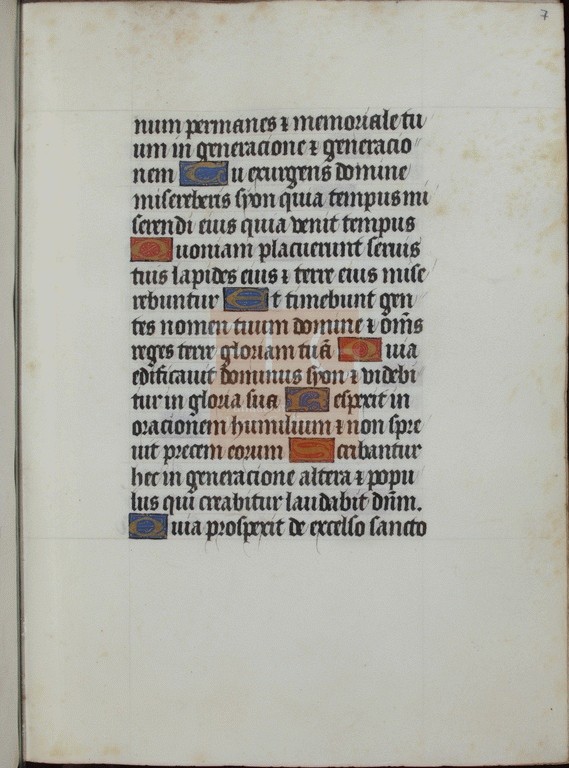 7
num permanes ⁊ memoriale tu
um in generacione ⁊ generacio
nem Tu exurgens domine
misereberis syon quia tempus mi
serendi eius quia venit tempus
Quoniam placuerunt seruis
tuis lapides eius ⁊ terre eius mise
rebuntur Et timebunt gen
tes nomen tuum domine ⁊ om̄s
reges terre gloriam tuā Quia
edificauit dominus syon ⁊ videbi
tur in gloria sua Respexit in
orationem humilium ⁊ non spre
uit precem eorum Scribantur
hec in generacione altera ⁊ popu
lus qui creabitur laudabit dn̄m.
Quia prospexit de excelso sancto